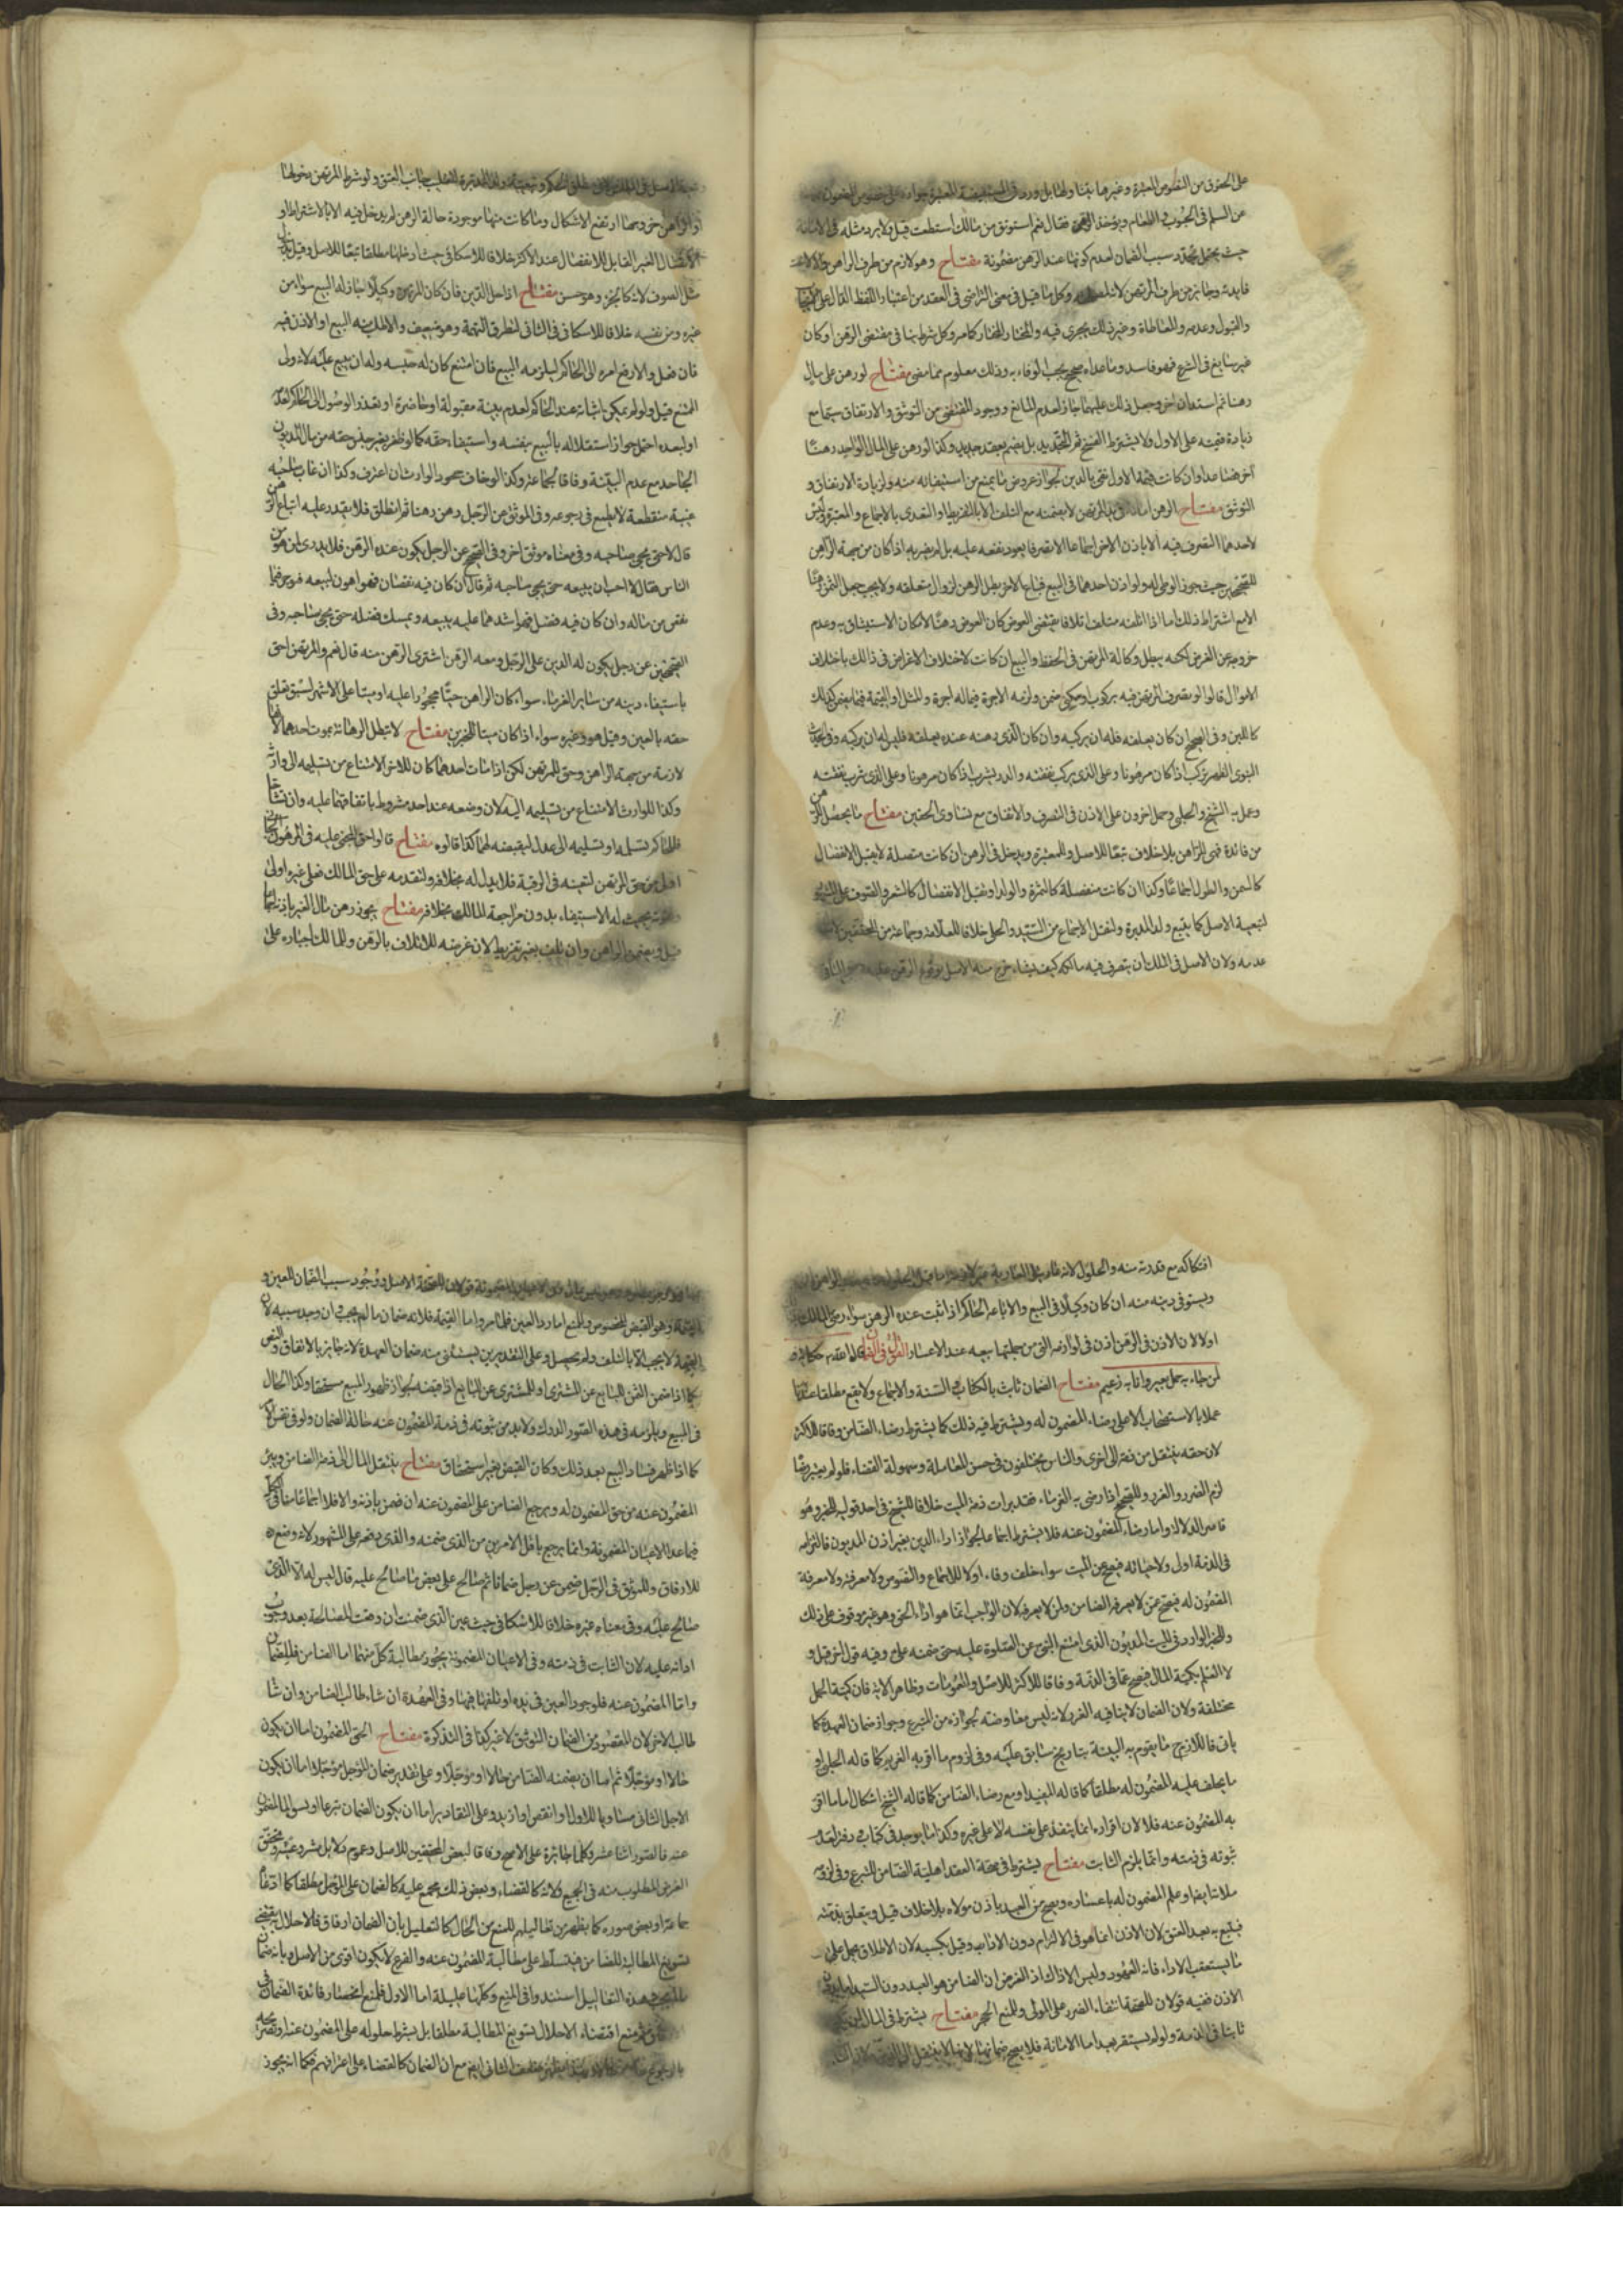 على الحقوق من النصوص المعتبرة وغيرها
عن السلم في الحيوان والطعام ويؤخذ الرهن فقال نعم استوثق من مالك ما استطعت قيل ولا يرد مثله في الامانة
حيث يحتمل تجدد سبب الضمان لعدم كونها عند الرهن مضمونة مفتاح وهو لازم من طرف الراهن والا لا
فايدة وجايز من طرف المرتهن وكل ما قيل في معنى التراضي في العقد من اعتبار اللفظ الدال على
والقبول وعدمه والمعاطاة وغير ذلك يجري فيه والمختار المختار كما مر وكل شرط ينافي مقتضى الرهن او كان
غير سايغ في الشرع فهو فاسد وما عداه صحيح يجب الوفاء به وذلك معلوم مما مضى مفتاح لو رهن على مال
رهنا ثم استدان اخر وجعل ذلك عليهما جاز لعدم المانع ووجود المقتضي من التوثق والارتفاق سيما مع
زيادة قيمته على الاول ولا يشترط الفسخ ثم التجديد بل يضم بعقد جديد وكذا لو رهن على المال الواحد رهنا
اخر فصاعدا وان كانت قيمة الاول تفي بالدين لجواز عروض ما يمنع من استيفائه منه ولزيادة الارتفاق و
التوثق مفتاح الرهن امانة في يد المرتهن لا يضمنه مع التلف الا بالتفريط او التعدي بالاجماع والمعتبرة وليس
لاحدهما التصرف فيه الا باذن الاخر اجماعا الا تصرفا يعود نفعه عليه بل لم يضر به اذا كان من جهة الراهن
للصحيحين حيث جوز الوطي له ولو اذن احدهما في البيع فباع الاخر بطل الرهن لزوال متعلقه ولا يجب جعل الثمن رهنا
الا مع اشتراط ذلك اما اذا اتلفه متلف اتلافا يقتضي العوض كان العوض رهنا لامكان الاستيثاق به وعدم
خروجه عن الغرض لكنه يبطل وكالة المرتهن في الحفظ والبيع ان كانت لاختلاف الاغراض في ذلك باختلاف
الاموال قالوا لو تصرف المرتهن فيه بركوب او سكنى ضمن ولزمه الاجرة فيما له اجرة والمثل او القيمة فيما يضمن كذلك
كاللبن وفي الصحيح ان كان يعلفه فله ان يركبه وان كان الذي رهنه عنده يعلفه فليس له ان يركبه وفي
النبوي الظهر يركب اذا كان مرهونا وعلى الذي يركب نفقته والدر يشرب اذا كان مرهونا وعلى الذي يشرب نفقته
وعمل به الشيخ والحلبي وحمل اخرون على الاذن في التصرف والانفاق مع تساوي الحقين مفتاح ما يحصل للرهن
من فائدة فهي للراهن بلا خلاف تبعا للاصل والمعتبرة ويدخل في الرهن ان كانت متصلة لا يقبل الانفصال
كالسمن والطول اجماعا وكذا ان كانت منفصلة كالثمرة والولد او تقبل الانفصال كالشعر والصوف على
لتبعية الاصل كما يتبع ولد المدبرة ولنقل الاجماع من السيد والحلي خلافا للعلامة وجماعة من المحققين
عدمه ولان الاصل في الملك ان يتصرف فيه مالكه كيف يشاء خرج منه الاصل بوقوع الرهن عليه
العتق ولو شرط المرتهن دخولها
او الراهن خروجها ارتفع الاشكال وما كانت منها موجودة حالة الرهن لم يدخل فيه الا بالاشتراط او
الاتصال الغير القابل للانفصال عند الاكثر خلافا للاسكافي حيث ادخلها مطلقا تبعا للاصل وقيل
مثل الصوف لانه كالجزء وهو حسن مفتاح اذا حل الدين فان كان المرتهن وكيلا جاز له البيع سواء من
غيره ومن نفسه خلافا للاسكافي في الثاني لتطرق التهمة وهو ضعيف والا طلب منه البيع او الاذن فيه
فان فعل والا رفع امره الى الحاكم ليلزمه البيع فان امتنع كان له حبسه وله ان يبيع عليه لانه ولي
الممتنع قيل ولو لم يمكن اثباته عند الحاكم لعدم بينة مقبولة او حاضرة او تعذر الوصول الى الحاكم لعدمه
او لبعده احتمل جواز استقلاله بالبيع بنفسه واستيفاء حقه كما لو ظفر بغير جنس حقه من مال المديون
الجاحد مع عدم البينة وفاقا لجماعة وكذا لو خاف جحود الوارث ان اعترف وكذا ان غاب صاحبه
غيبة منقطعة لا يطمع في رجوعه وفي الموثق عن الرجل رهن رهنا ثم انطلق فلا يقدر عليه اتباع الرهن
قال لا حتى يجئ صاحبه وفي معناه موثق اخر وفي الصحيح عن الرجل يكون عنده الرهن فلا يدري لمن هو من
الناس فقال لا احب ان يبيعه حتى يجئ صاحبه ثم قال ان كان فيه نقصان فهو اهون لبيعه فيوجر فيما
نقص من ماله وان كان فيه فضل فهو اشدهما عليه يبيعه ويمسك فضله حتى يجئ صاحبه وفي
الصحيحين عن رجل يكون له الدين على الرجل ومعه الرهن اشترى الرهن منه قال نعم والمرتهن احق
باستيفاء دينه من ساير الغرماء سواء كان الراهن حيا محجورا عليه او ميتا على الاشهر لسبق تعلق
حقه بالعين وقيل هو وغيره سواء اذا كان ميتا للخبرين مفتاح لا تبطل الرهانة بموت احدهما لانها
لازمة من جهة الراهن وحق للمرتهن لكن اذا مات احدهما كان للاخر الامتناع من تسليمه الى وارث
وكذا للوارث الامتناع من تسليمه اليه لان وضعه عند احد مشروط باتفاقهما عليه وان تشاحا
فللحاكم تسلمه او تسليمه الى عدل ليقبضه لهما كذا قالوه مفتاح قالوا حق المجني عليه في المرهون
اقوى من حق المرتهن لتعينه في الرقبة فلا بدل له بخلافه ولتقدمه على حق المالك فعلى غيره اولى
بحيث له الاستيفاء بدون مراجعة المالك بخلافه مفتاح يجوز رهن مال الغير باذنه
قيل ويضمنه الراهن وان تلف بغير تفريط لان تعريضه للاتلاف بالرهن وللمالك اجباره على
افتكاكه مع قدرته منه والحلول لانه
ويستوفي دينه منه ان كان وكيلا في البيع والا باعه الحاكم اذا ثبت عنده الرهن سواء رضي المالك
او لا لان الاذن في الرهن اذن في لوازمه التي من جملتها بيعه عند الاعسار القول في الضمان
لمن جاء به حمل بعير وانا به زعيم مفتاح الضمان ثابت بالكتاب والسنة والاجماع ولا يقع مطلقا عندنا
عملا بالاستصحاب الا على رضاء المضمون له ويشترط فيه ذلك كما يشترط رضاء الضامن وفاقا للاكثر
لان حقه ينتقل من ذمة الى اخرى والناس يختلفون في حسن المعاملة وسهولة القضاء فلو لم يعتبر رضاه
لزم الضرر والغرر وللصحيح اذا رضي به الغرماء فقد برات ذمة الميت خلافا للشيخ في احد قوليه للخبر وهو
قاصر الدلالة واما رضاء المضمون عنه فلا يشترط اجماعا لجواز اداء الدين بغير اذن المديون فالتزامه
في الذمة اولى ولا حياته فيصح عن الميت سواء خلف وفاء او لا للاجماع والنصوص ولا معرفته ولا معرفة
المضمون له فيصح عمن لا يعرفه الضامن ولمن لا يعرفه لان الواجب انما هو اداء الحق وهو غير موقوف على ذلك
وللخبر الوارد في الميت المديون الذي امتنع النبي عن الصلوة عليه حتى ضمنه علي وفيه قول اخر قيل و
لا العلم بكمية المال فيصح عما في الذمة وفاقا للاكثر للاصل والعمومات وظاهر الاية فان كمية الحمل
مختلفة ولان الضمان لا ينافيه الغرر لانه ليس معاوضة لجوازه من المتبرع وجواز ضمان العهدة كما
ما يقوم به البينة بتاريخ سابق عليه وفي لزوم ما اقر به الغريم كما قاله الحلبي او
ما يحلف عليه المضمون له مطلقا كما قاله المفيد او مع رضاء الضامن كما قاله الشيخ اشكال اما ما اقر
به المضمون عنه فلا لان اقراره انما ينفذ على نفسه لا على غيره وكذا ما يوجد في كتاب او دفتر لعدم
ثبوته في ذمته وانما يلزم الثابت مفتاح يشترط في صحة العقد اهلية الضامن للتبرع وفي لزومه
ملائته او علم المضمون له باعساره ويصح من العبد باذن مولاه بلا خلاف قيل ويتعلق بذمته
فيتبع به بعد العتق لان الاذن انما هو في الالتزام دون الاداء وقيل بكسبه لان الاطلاق يحمل على
ما يستعقب الاداء فانه المعهود وليس الاداء كذلك اذ الفرض ان الضامن هو العبد دون السيد اما بدون
الاذن ففيه قولان للصحة انتفاء الضرر على المولى وللمنع الحجر مفتاح يشترط في المال
ثابتا في الذمة ولو لم يستقر بعد اما الامانة فلا يصح ضمانها
قولان للصحة الاصل ووجود سبب الضمان للعين و
القيمة وهو القبض المخصوص وللمنع اما رد العين فلما مر واما القيمة فلانه ضمان ما لم يجب وان وجد سببه لان
القيمة لا يجب الا بالتلف ولم يحصل وعلى التقديرين يستثنى منه ضمان العهدة لانه جايز بالاتفاق والنص
كما اذا ضمن الثمن للبايع عن المشتري او للمشتري عن البايع اذا قبضه لجواز ظهور المبيع مستحقا وكذا الحال
في المبيع ويلزمه في هذه الصور الدرك ولا بد من ثبوته في ذمة المضمون عنه حالة الضمان ولو في نفس الامر
كما اذا ظهر فساد البيع بعد ذلك وكان القبض بغير استحقاق مفتاح ينتقل المال الى ذمة الضامن ويبرئ
المضمون عنه من حق المضمون له ويرجع الضامن على المضمون عنه ان ضمن باذنه والا فلا اجماعا منا في الكل
فيما عدا الاعيان المضمونة وانما يرجع باقل الامرين من الذي ضمنه والذي دفعه على المشهور لانه وضع
للارفاق وللموثق في الرجل ضمن عن رجل ضمانا ثم صالح على بعض ما صالح عليه قال ليس له الا الذي
صالح عليه وفي معناه غيره خلافا للاسكافي حيث عين الذي ضمنت ان وقعت المصالحة بعد وجوب
ادائه عليه لان الثابت في ذمته وفي الاعيان المضمونة يجوز مطالبة كل منهما اما الضامن فللضمان
واما المضمون عنه فلوجود العين في يده او تلفها فيها وفي العهدة ان شاء طالب الضامن وان شاء
طالب الاخر لان المقصود من الضمان التوثق لا غير كذا في التذكرة مفتاح الحق المضمون اما ان يكون
حالا او مؤجلا ثم اما ان يضمنه الضامن حالا او مؤجلا وعلى تقدير ضمان المؤجل مؤجلا اما ان يكون
الاجل الثاني مساويا للاول او انقص او ازيد وعلى التقادير اما ان يكون الضمان تبرعا او بسؤال المضمون
عنه فالصور اثنا عشر وكلها جائزة على الاصح وفاقا لبعض المحققين للاصل وعموم
الغرض المطلوب منه في الجميع ولانه كالقضاء وبعض ذلك مجمع عليه كالضمان على المؤجل مطلقا كما ادعاه
جماعة او بعض صوره كما يظهر من تعاليلهم للمنع من الحال كالتعليل بان الضمان ارفاق فالاخلال به يقتضي
تسويغ المطالبة للضامن فيتسلط على مطالبة المضمون عنه والفرع لا يكون اقوى من الاصل وبانه ضمان
ما لم يجب فبهذه التعاليل استندوا في المنع وكلها عليلة اما الاول فلمنع انحصار فائدة الضمان في
ثم منع اقتضاء الاخلال تسويغ المطالبة مطلقا بل بشرط حلوله على المضمون عنه او تصريحه
الثاني ايضا مع ان الضمان كالقضاء على اعترافهم فكما انه يجوز